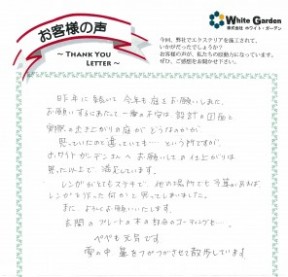 お客様の声
~ THANK YOU
LETTER ~
White Garden
株式会社 ホワイト・ガーデン
今回、弊社でエクステリアを施工されて、
いかがだったでしょうか?
お客様の声が、私たちの原動力になっています。
ぜひ、ご感想をお聞かせ下さい。
昨年に続いて 今年も庭をお願いしました。
お願いするにあたって一番の
実際の出き上がりの庭が どうなのかが
思っていたのと違っていても… という所ですが、
ホワイトガーデンさんへ お願いしての仕上がりは
思った以上で 満足しています。
レンガがとてもステキで 他の場所でも予算があれば、
レンガを 何かと思ってしまいました。
また よろしくお願いいたします。
玄関の プレートの
べべも元気です
雪の中 散歩しています